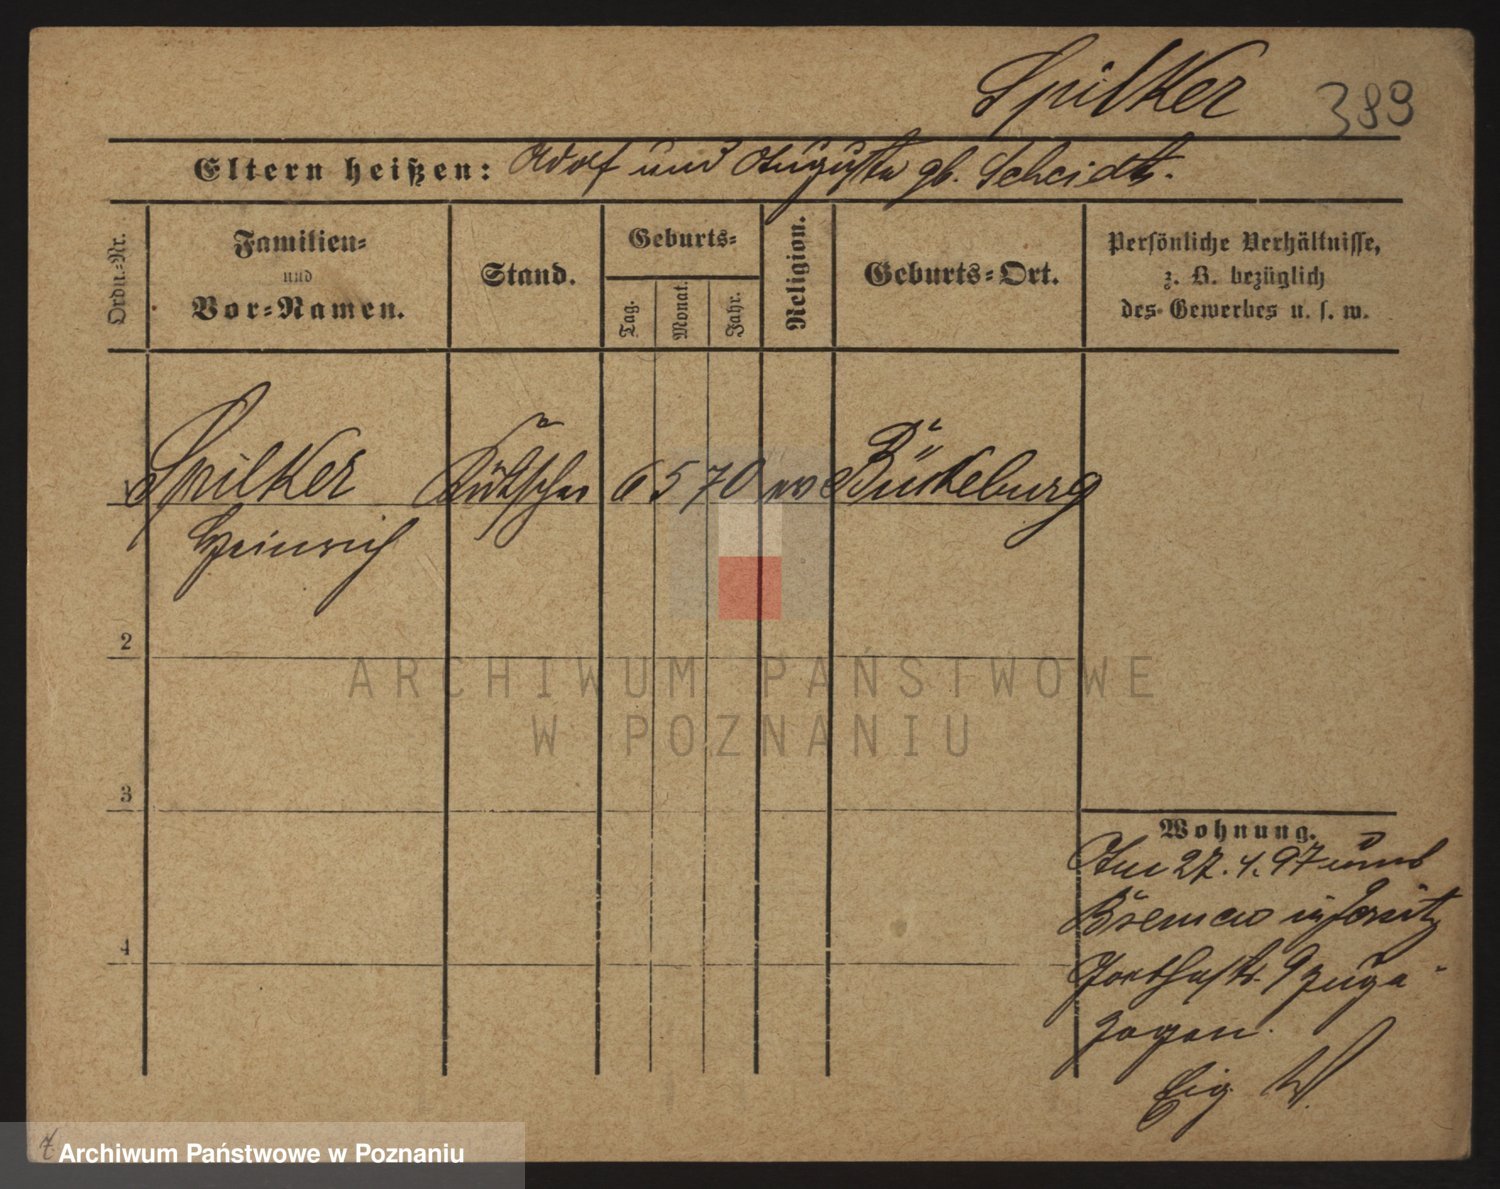 Spilker 389
Eltern heißen: Adolf und Auguste gb. Scheidt.
Ordn.-Nr.
Familien-
und
Vor-Namen.
Stand.
Geburts-
Tag.
Monat.
Jahr.
Religion.
Geburts-Ort.
Persönliche Verhältnisse,
z. B. bezüglich
des Gewerbes u. s. w.
1 Spilker Kutscher 6 5 70 ev Bückeburg
Heinrich
2
3
4
Wohnung.
Am 27. 4. 97 von
Bremen in Jersitz
9 zuge-
zogen.
Eig. W.
ARCHIWUM PAŃSTWOWE
W POZNANIU
Archiwum Państwowe w Poznaniu